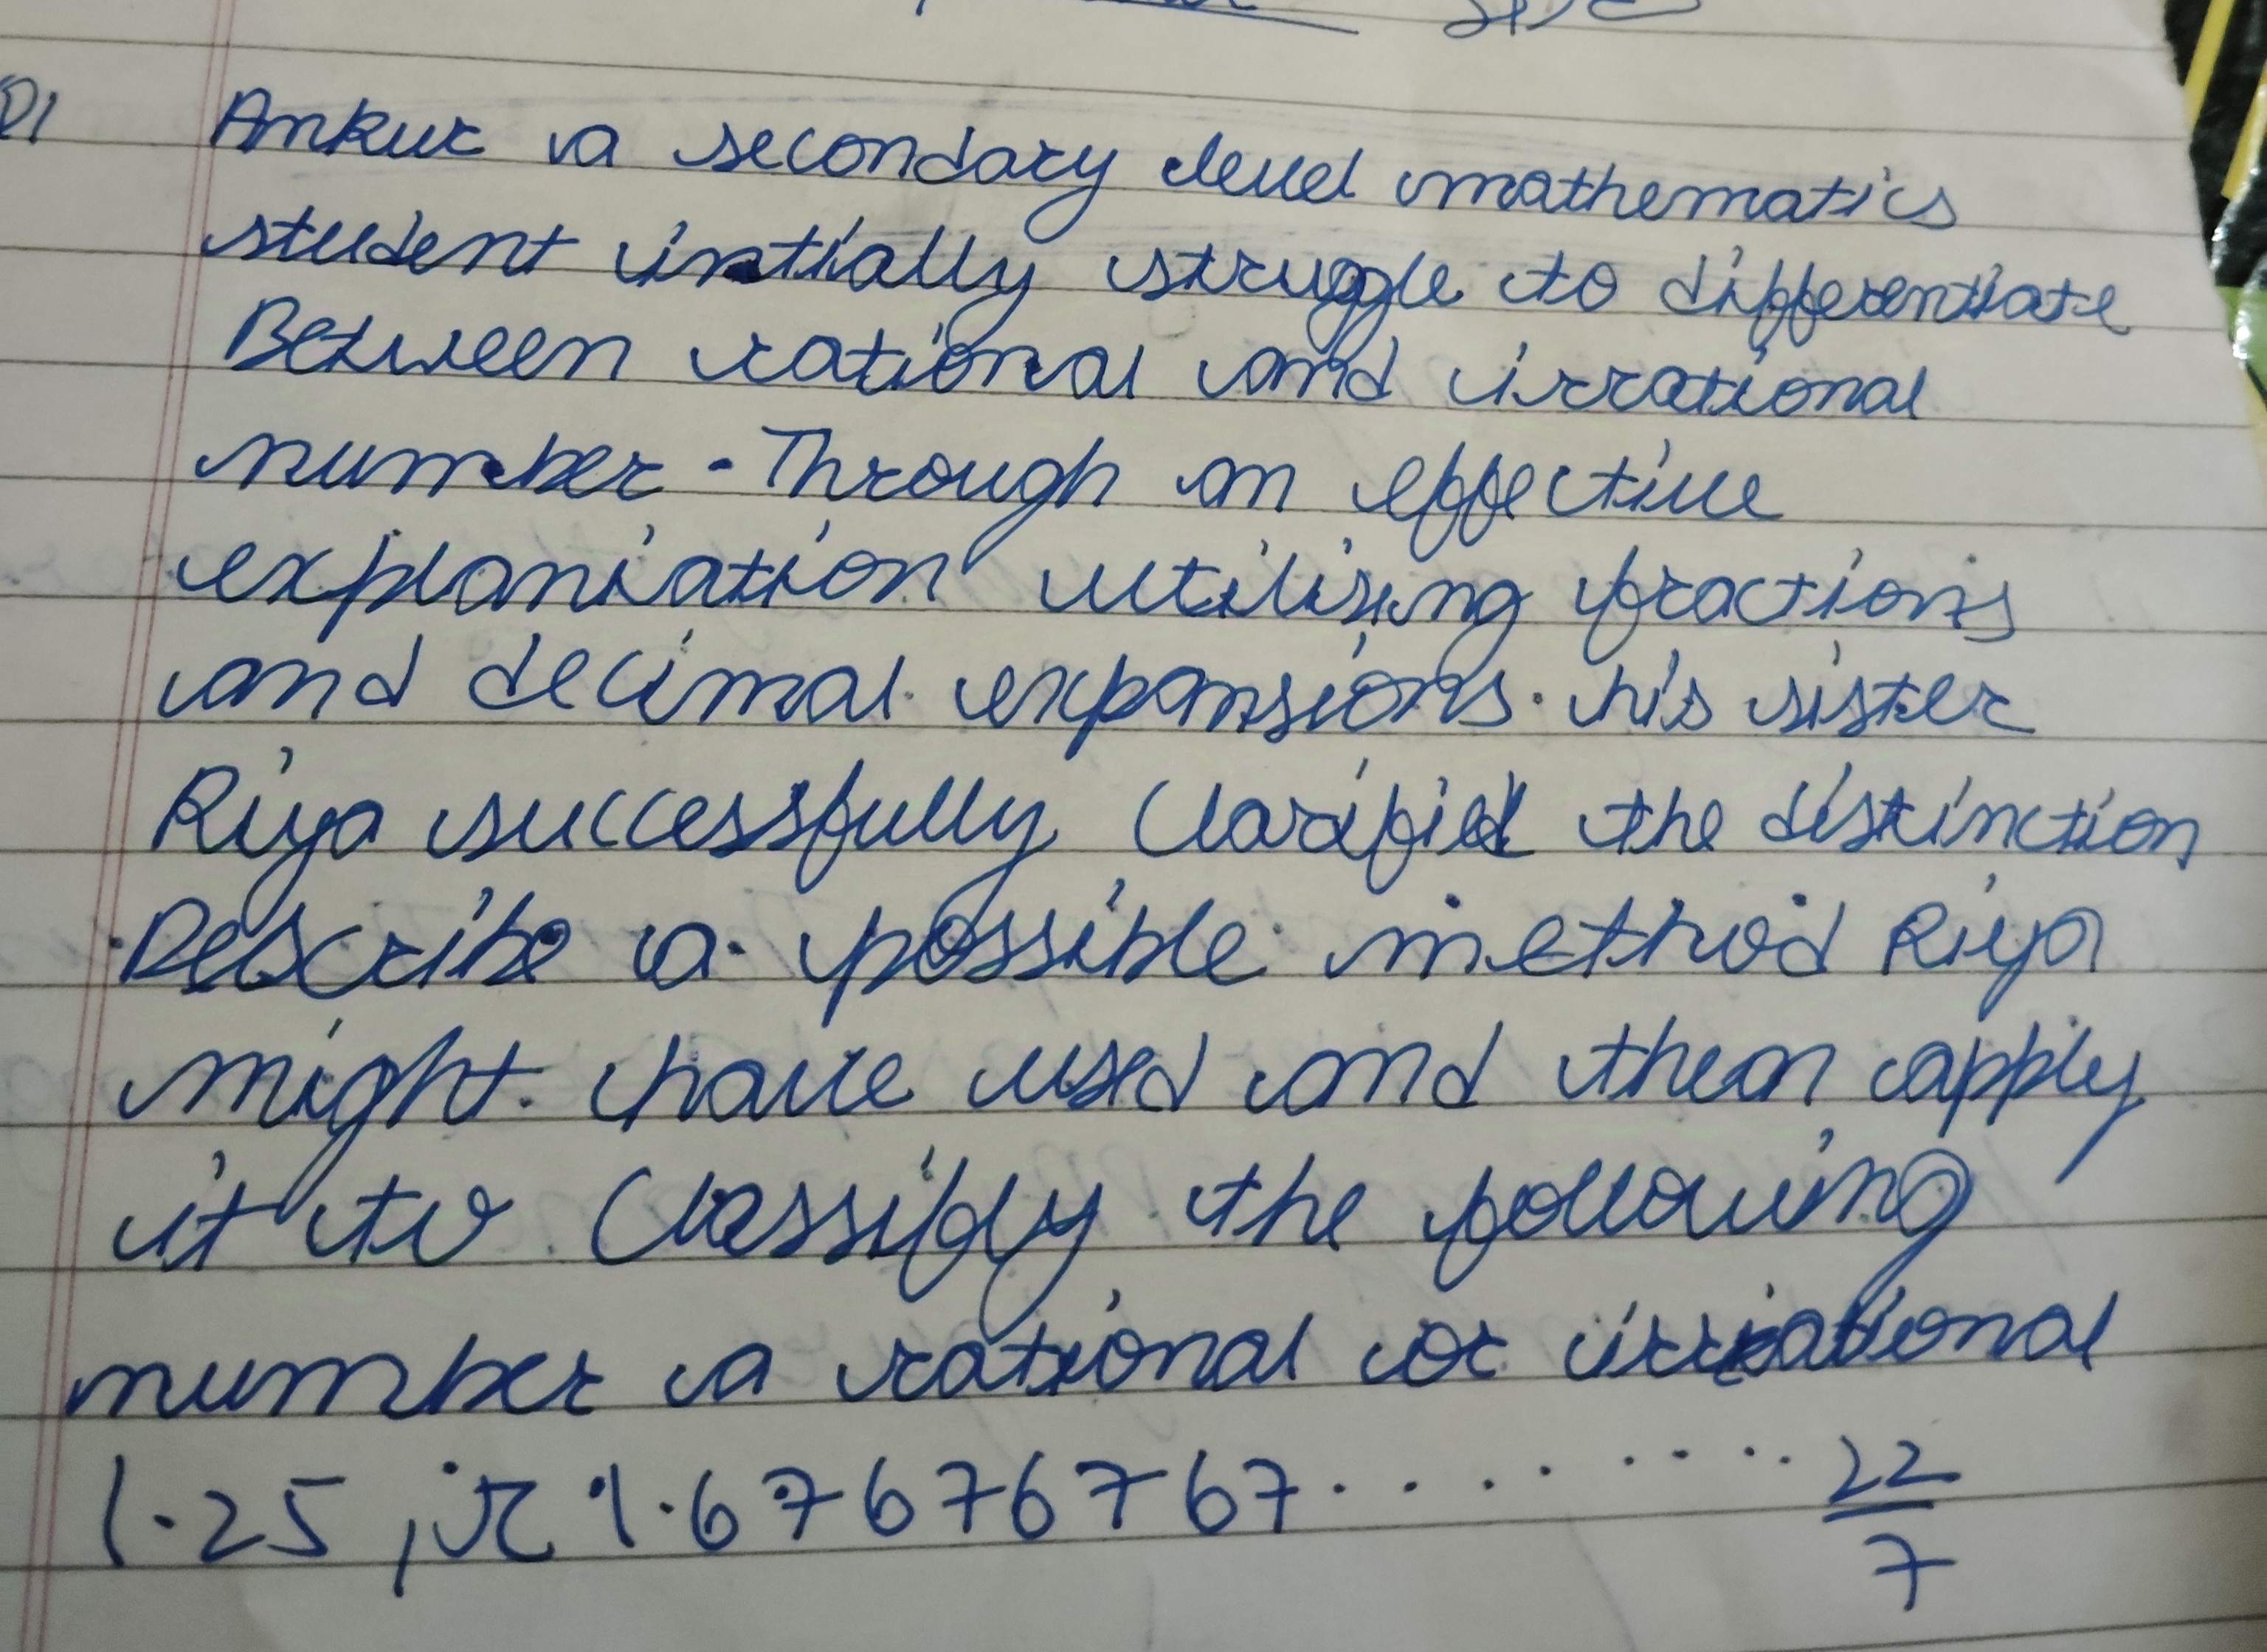 Q1 Ankur a secondary level mathematics
student initially struggle to differentiate
Between rational and irrational
number. Through an effective
explaniation utilising fractions
and decimal expansions. his sister
Riya successfully Clarified the distinction
Describe a possible method Riya
might have used and then apply
it to Classify the following
number a rational or irrational
1.25, π 1.67676767......... 22/7